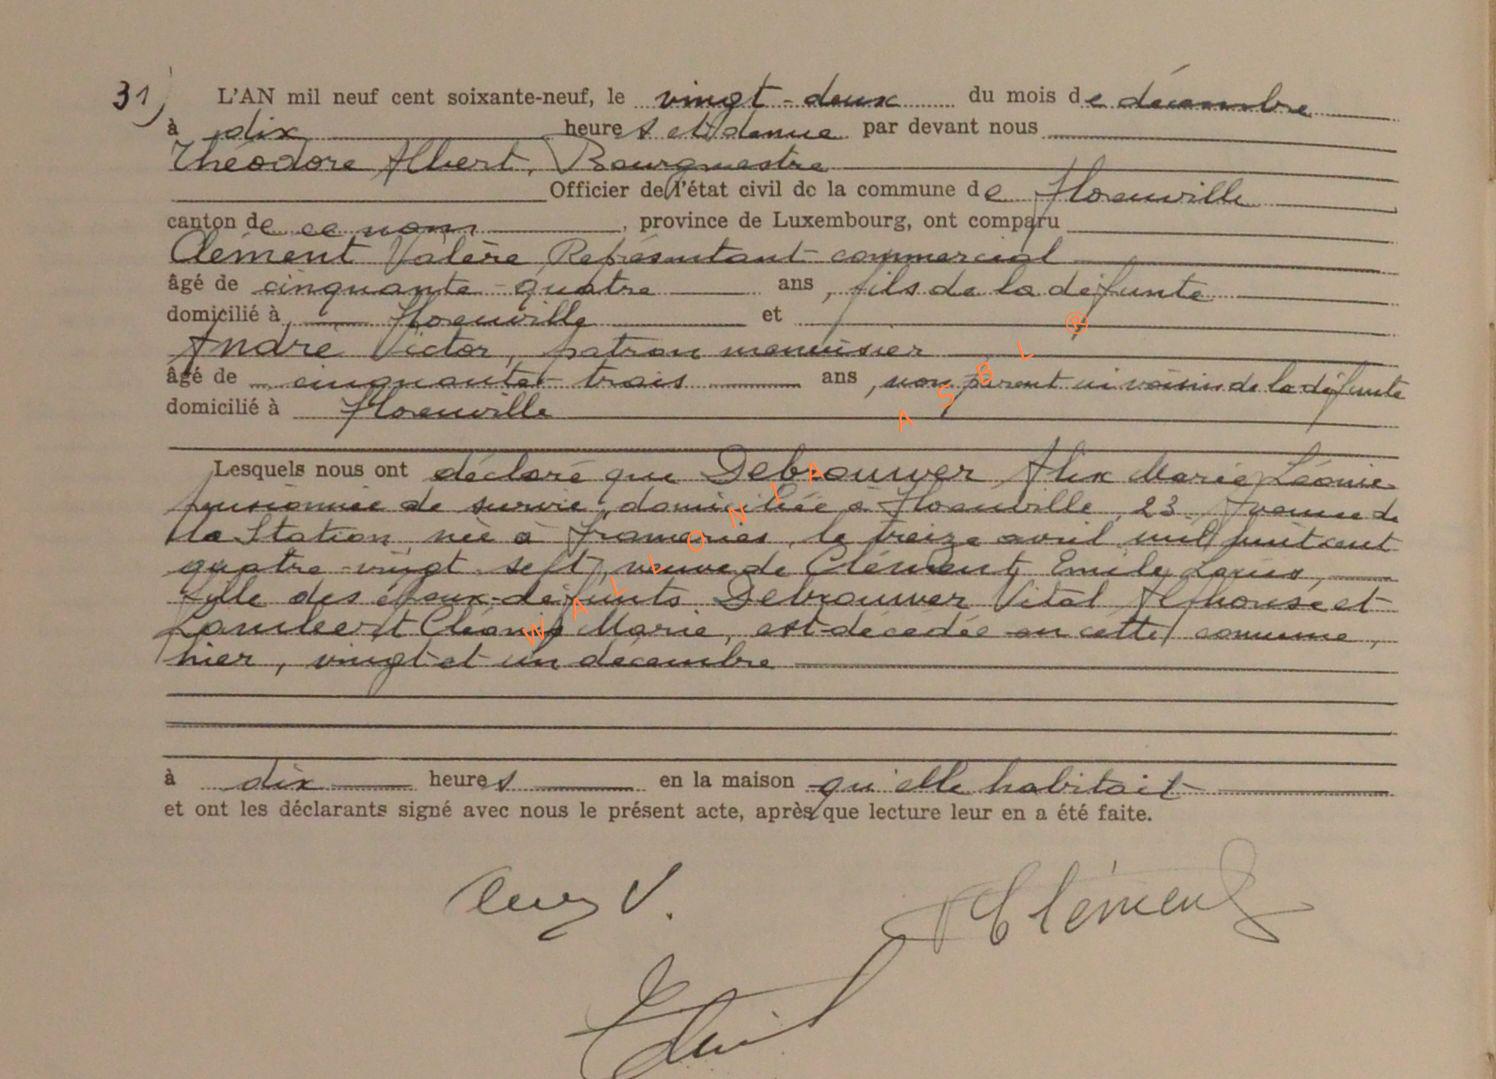 31)
L'AN mil neuf cent soixante-neuf, le vingt-deux du mois de décembre
à dix heures et demie par devant nous
Théodore Albert, Bourgmestre
Officier de l'état civil de la commune de Florenville
canton de ce nom, province de Luxembourg, ont comparu
Clément Valère Représentant commercial
âgé de cinquante-quatre ans, fils de la défunte
domicilié à Florenville et
André Victor, patron menuisier
âgé de cinquante-trois ans, non parent ni voisin de la défunte
domicilié à Florenville
Lesquels nous ont déclaré que Debrouwer Alix Marie Léonie
pensionnée de survie, domiciliée à Florenville, 23, Avenue de
la Station, née à Frameries, le treize avril mil huit cent
quatre-vingt sept, veuve de Clément, Emile Louis,
fille des époux-défunts Debrouwer Vital Alphonse et
Lambert Marie, est décédée en cette commune,
hier, vingt et un décembre
à dix heures en la maison qu'elle habitait
et ont les déclarants signé avec nous le présent acte, après que lecture leur en a été faite.
Clément
WALLONIA ASBL ®